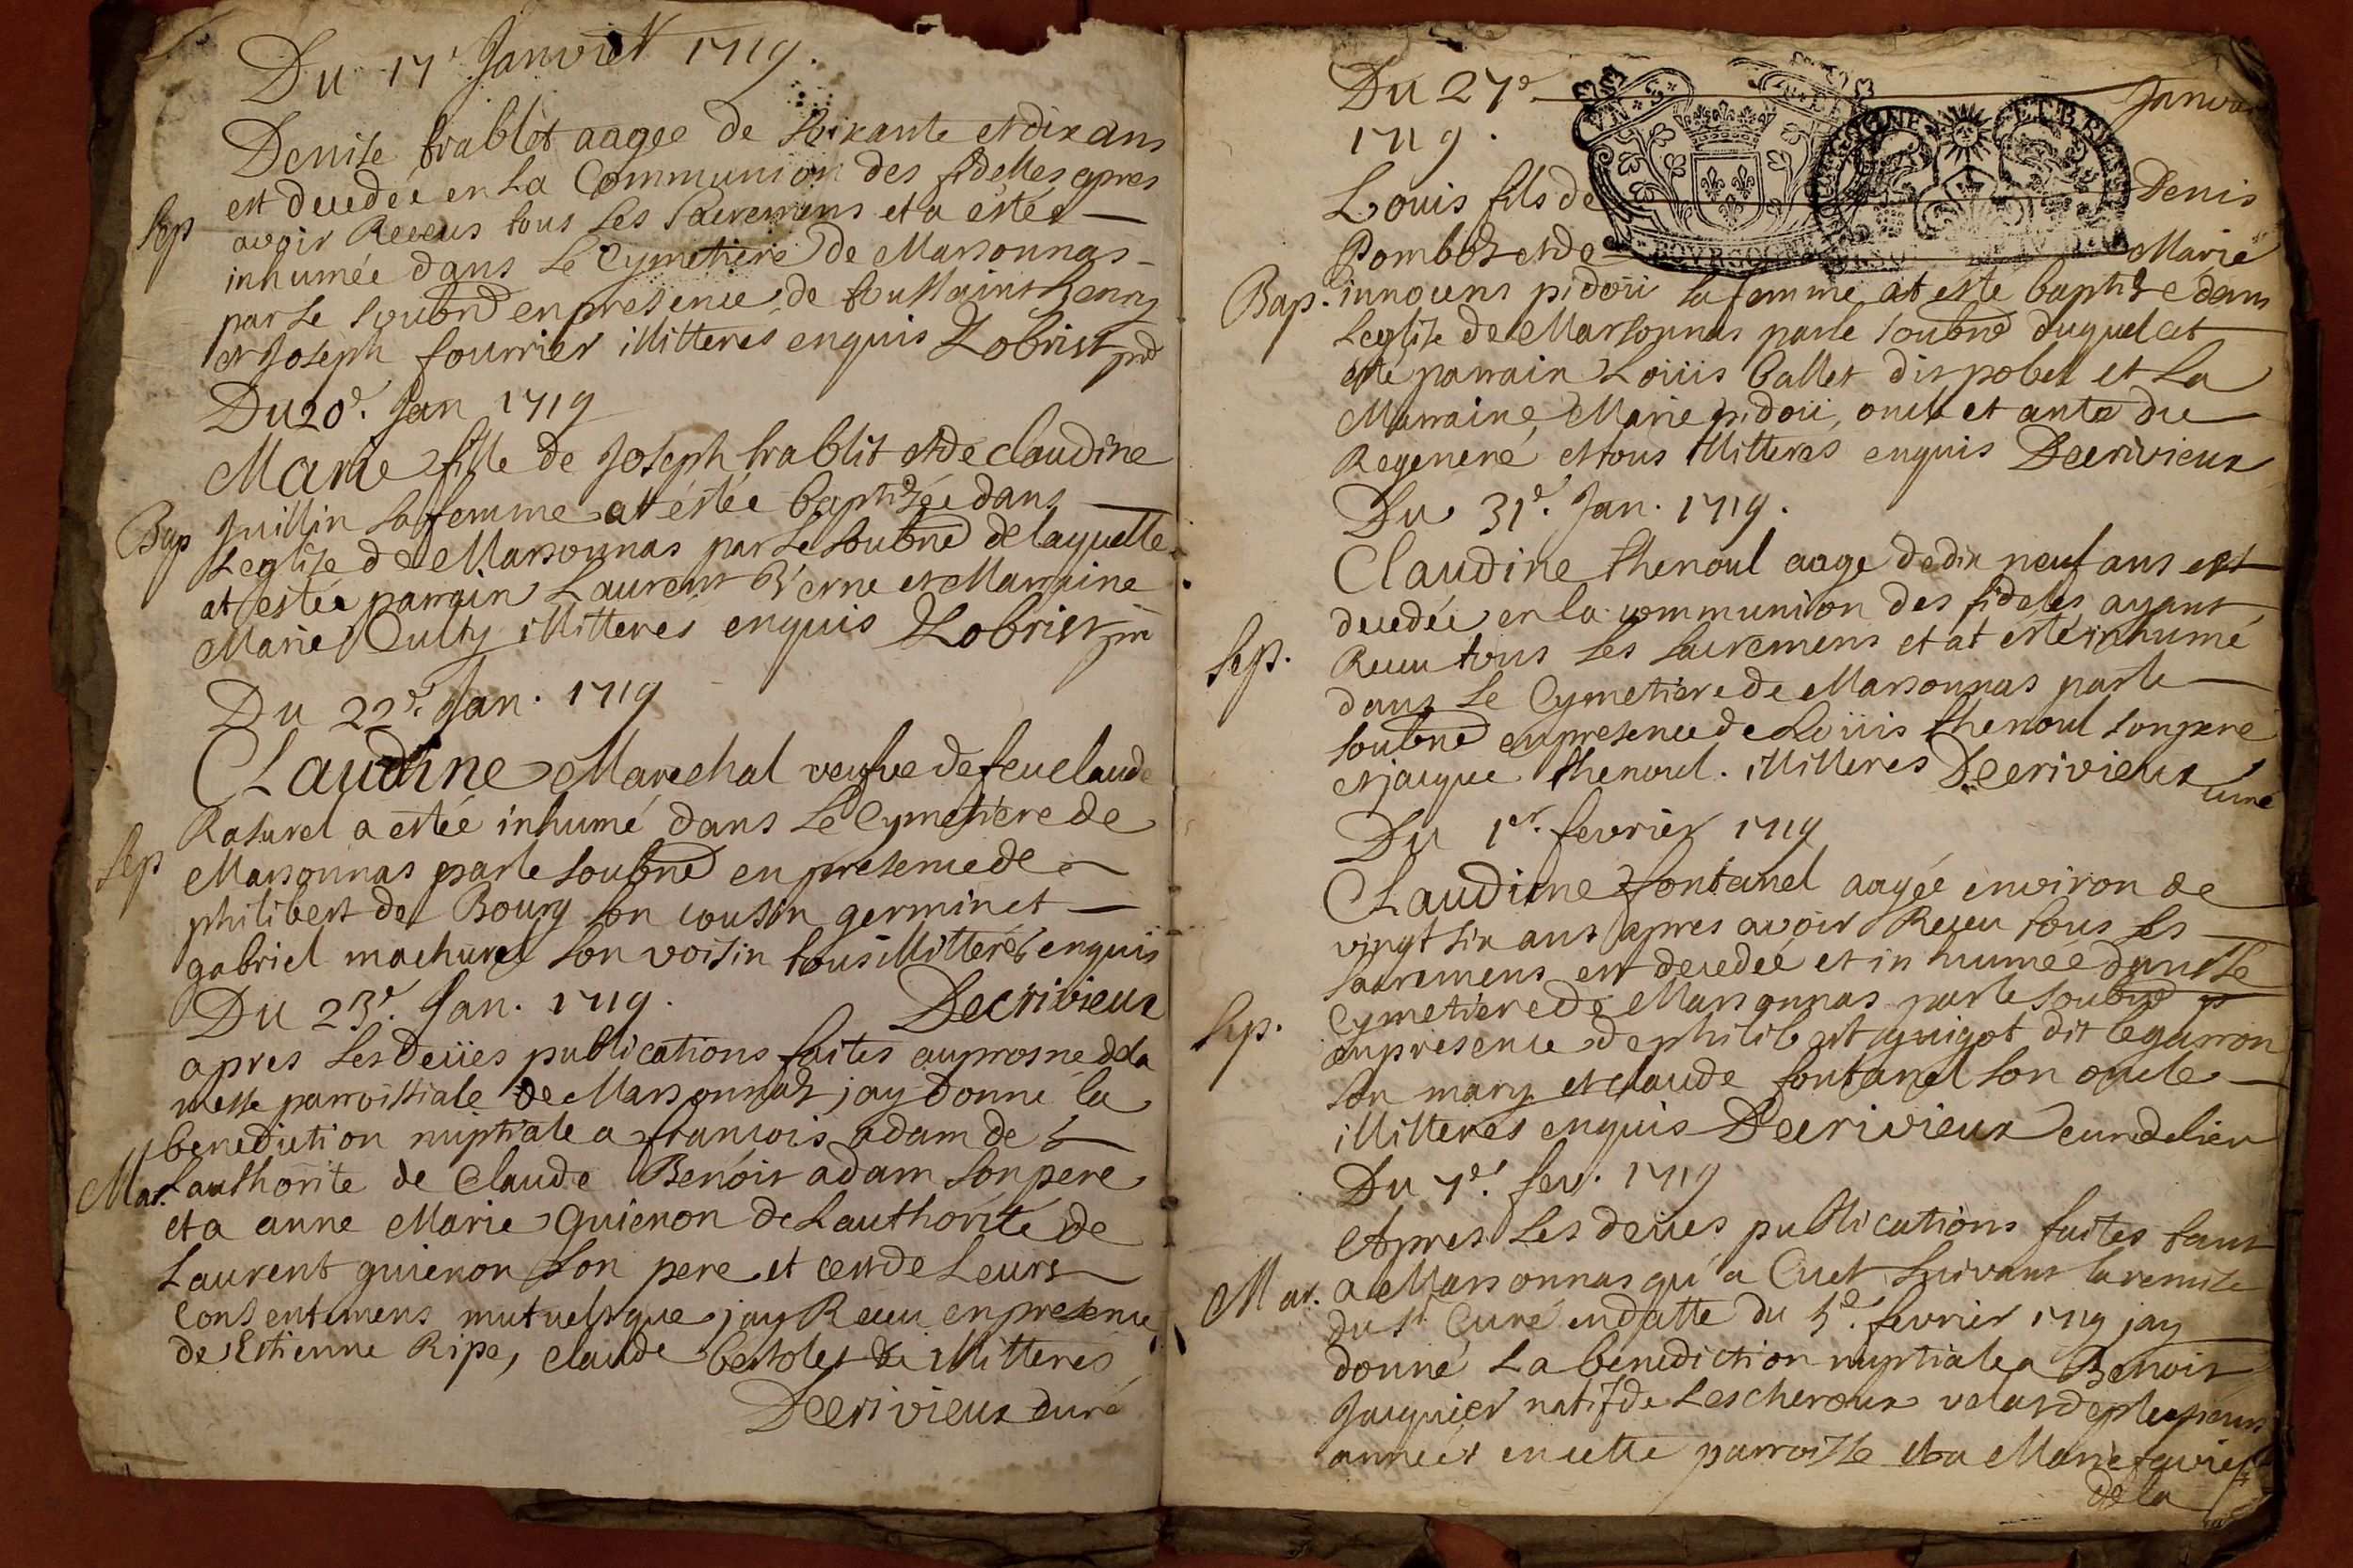 Du 17e Janvier 1719.
Denise trablet aagée de soixante et dix ans
est decedée en La Communion des fidelles apres
Sep
avoir Receus tous Les Sacremens et a estée
inhumée dans Le Cymetiere de Marsonnas
par Le soubné en presence de toussaint henry
et Joseph fourrier illitteres enquis Lobrist
Du 20e. Jan 1719
Marie fille de Joseph trablit et de Claudine
Bap
Juillin sa femme at estée baptisée dans
Leglise de Marsonnas par Le soubné de laquelle
at estée parrain Laurent Verne et Marraine
Marie Culty illitteres enquis Lobrist
Du 22e. Jan. 1719
CLaudine Marechal veufve de feu claude
Rasurel a estée inhumé dans Le Cymetiere de
Sep
Marsonnas par le soubné en presence de
philibert de Bourg son cousin germin et
gabriel machurel son voisin tous illitterés enquis
Du 23e. Jan. 1719. Decrivieux
apres Les deües publications faites au prosne de la
messe parroissiale de Marsonnas jay donné la
benediction nuptiale a françois adam de
Mar.
Lauthorite de Claude Benoit adam son pere
et a anne Marie Guienon de Lauthorité de
Laurent guienon son pere et ce de Leurs
Consentemens mutuels que jay Receu en presence
de Estienne Ripe, claude bertolet illitteres
Decrivieux curé
Du 27e Janvi
1719.
Louis fils de Denis
Pombet et de Marie
BOURGOGNE
Bap.
innocens pidoü sa femme at este baptisé dans
Leglise de Marsonnas par le soubné duquel at
este parrain Loüis ballet dit pobel et La
Marraine Marie pidoü, oncle et ante du
Regeneré et tous illitteres enquis Decrivieux
Du 31e. Jan. 1719.
Claudine thenoul aage de dix neuf ans est
decedée en la communion des fideles ayant
Sep.
Receu tous Les sacremens et at esté inhumé
dans Le Cymetiere de Marsonnas par le
soubné en presence de Loüis thenoul son pere
et jacque thenoul. illitteres Decrivieux
curé
Du 1er. fevrier 1719
CLaudine fontanel aagée environ de
vingt six ans apres avoir Receu tous Les
sacremens est decedée et inhumée dans Le
Cymetiere de Marsonnas par le soubné
Sep.
en presence de philibert guigot dit legarron
son mary et claude fontanel son oncle
illitteres enquis Decrivieux
Du 7e. fev. 1719
Apres Les deües publications faites tant
Mar.
a Marsonnas qu'a Cuet suivant la remise
du Sr Curé en datte du 5e. fevrier 1719 jay
donné La benediction nuptiale a Benoit
Jacquier natif de Lescheroux de plusieurs
années en cette parroisse et a Marie
de la